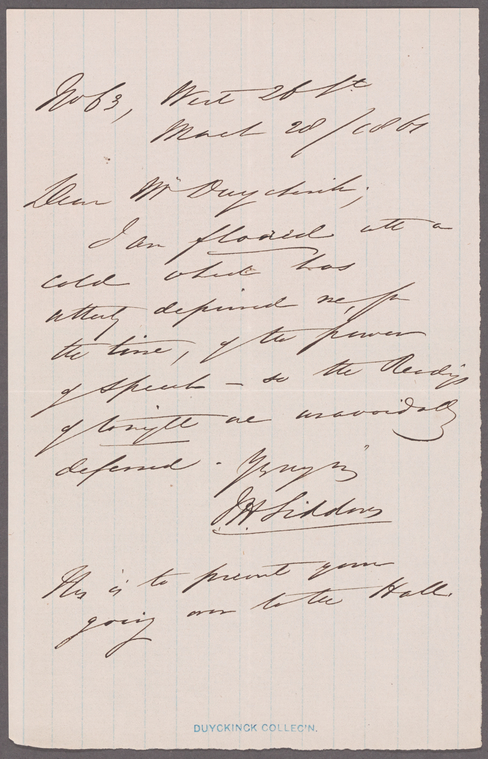 No 63, West 26 St
March 28/1861
Dear Mr Duyckinck,
I am floored with a
cold which has
utterly deprived me, for
the time, of the power
of speech – so the Readings
of tonight are unavoidably
deferred. Yrs
J H Siddons
This is to prevent your
going over to the Hall
DUYCKINCK COLLEC'N.